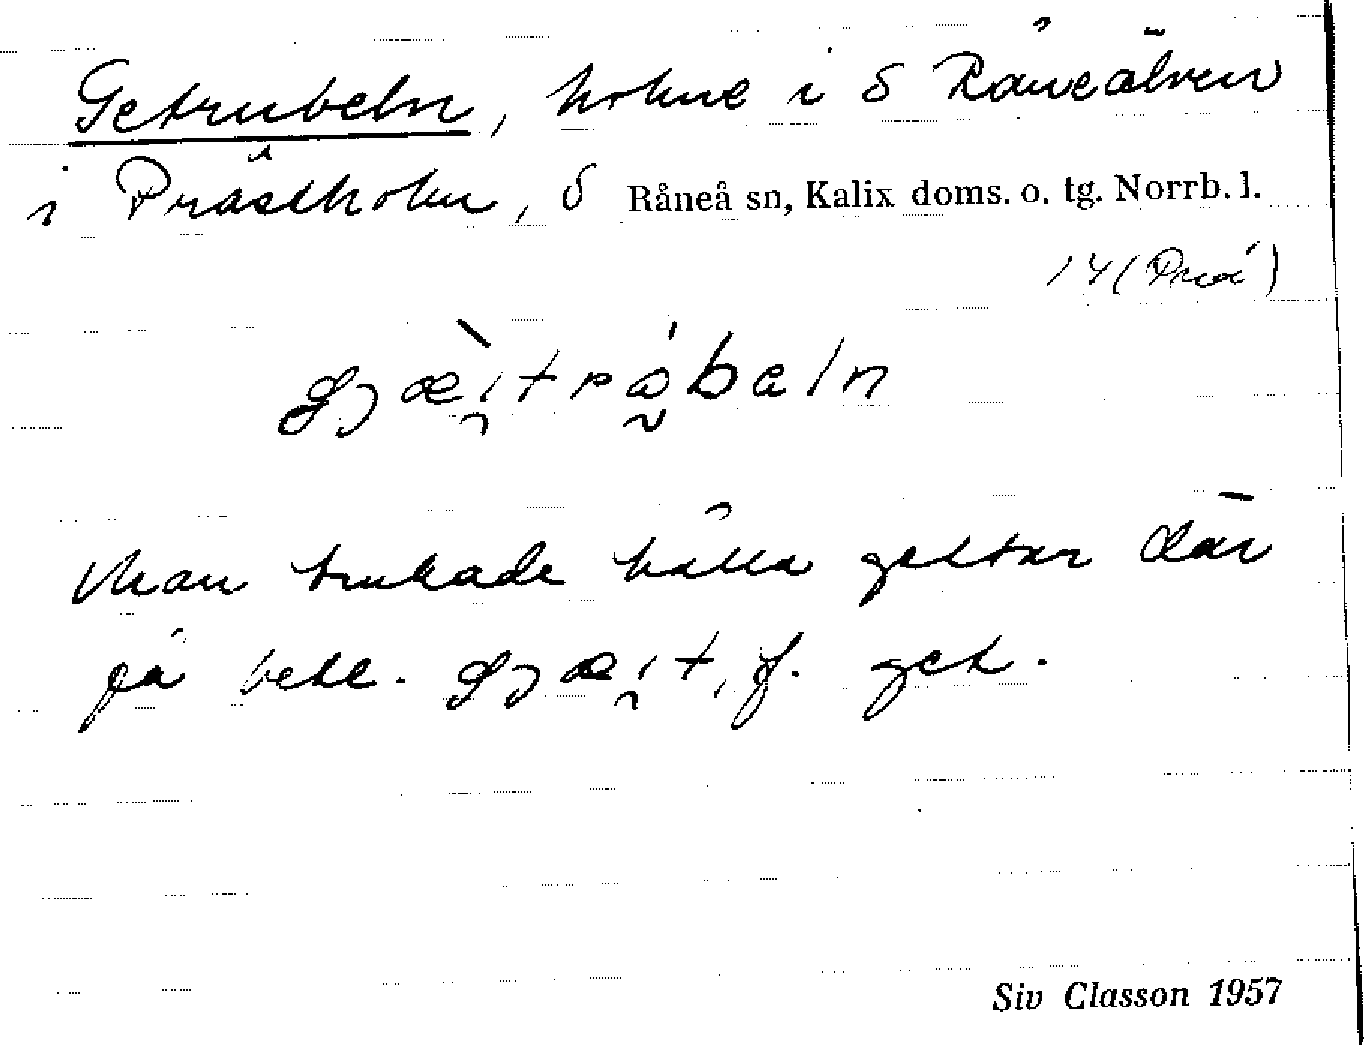 Getrubeln, holme i S Råneälven
i Prästholm, S Råneå sn, Kalix doms. o. tg. Norrb. l.
man brukade hålla gettar där
på bete. gjæi̯t, f. get.
Siv Classon 1957